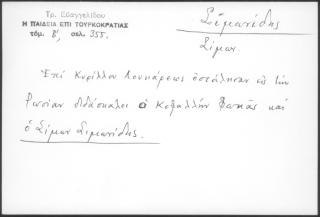 Τρ. Εὐαγγελίδου
Η ΠΑΙΔΕΙΑ ΕΠΙ ΤΟΥΡΚΟΚΡΑΤΙΑΣ
τόμ. Β', σελ. 355.
Σιμωνίδης
Σίμων.
Ἐπί Κυρίλλου Λουκάρεως ἐστάλησαν εἰς τήν
Ρωσίαν διδάσκαλοι ὁ Κεφαλλήν Φωκᾶς καί
ὁ Σίμων Σιμωνίδης.